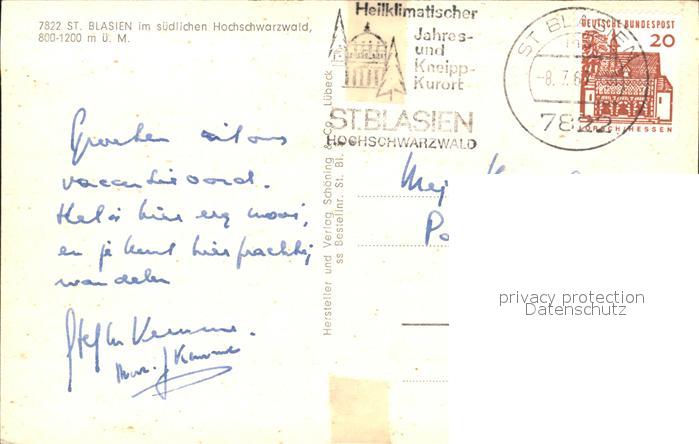 7822 ST. BLASIEN im südlichen Hochschwarzwald,
800-1200 m ü. M.
Groeten uit ons
vacantieoord.
Het is hier erg mooi,
en je kunt hier prachtig
wandelen
Hersteller und Verlag Schöning & Co., Lübeck
ss Bestellnr. St. Bl.
Heilklimatischer
Jahres-
und
Kneipp-
Kurort
ST.BLASIEN
HOCHSCHWARZWALD
ST BLASIEN
-8.7.6
7822
DEUTSCHE BUNDESPOST
20
LORSCH/HESSEN
Mej
Po
privacy protection
Datenschutz